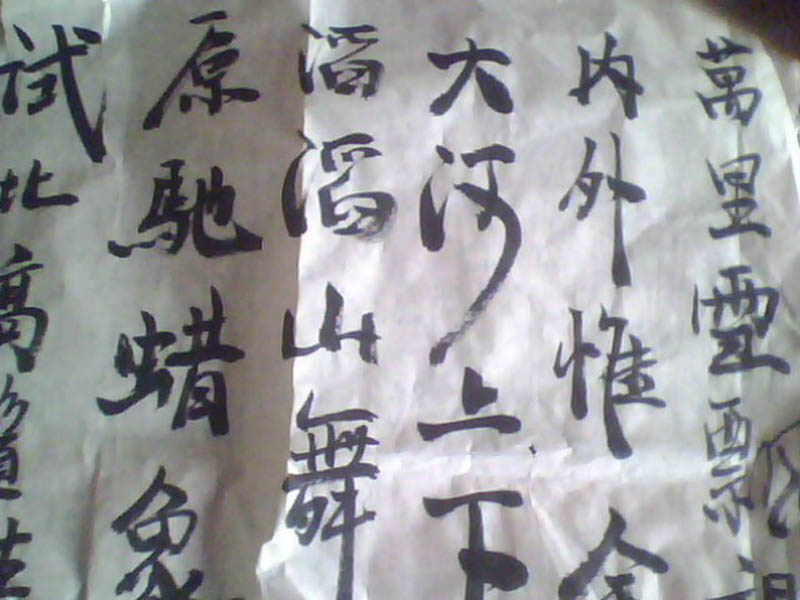 萬里雪飄
内外惟余
大河上下
滔滔山舞
原馳蜡象
試比高須